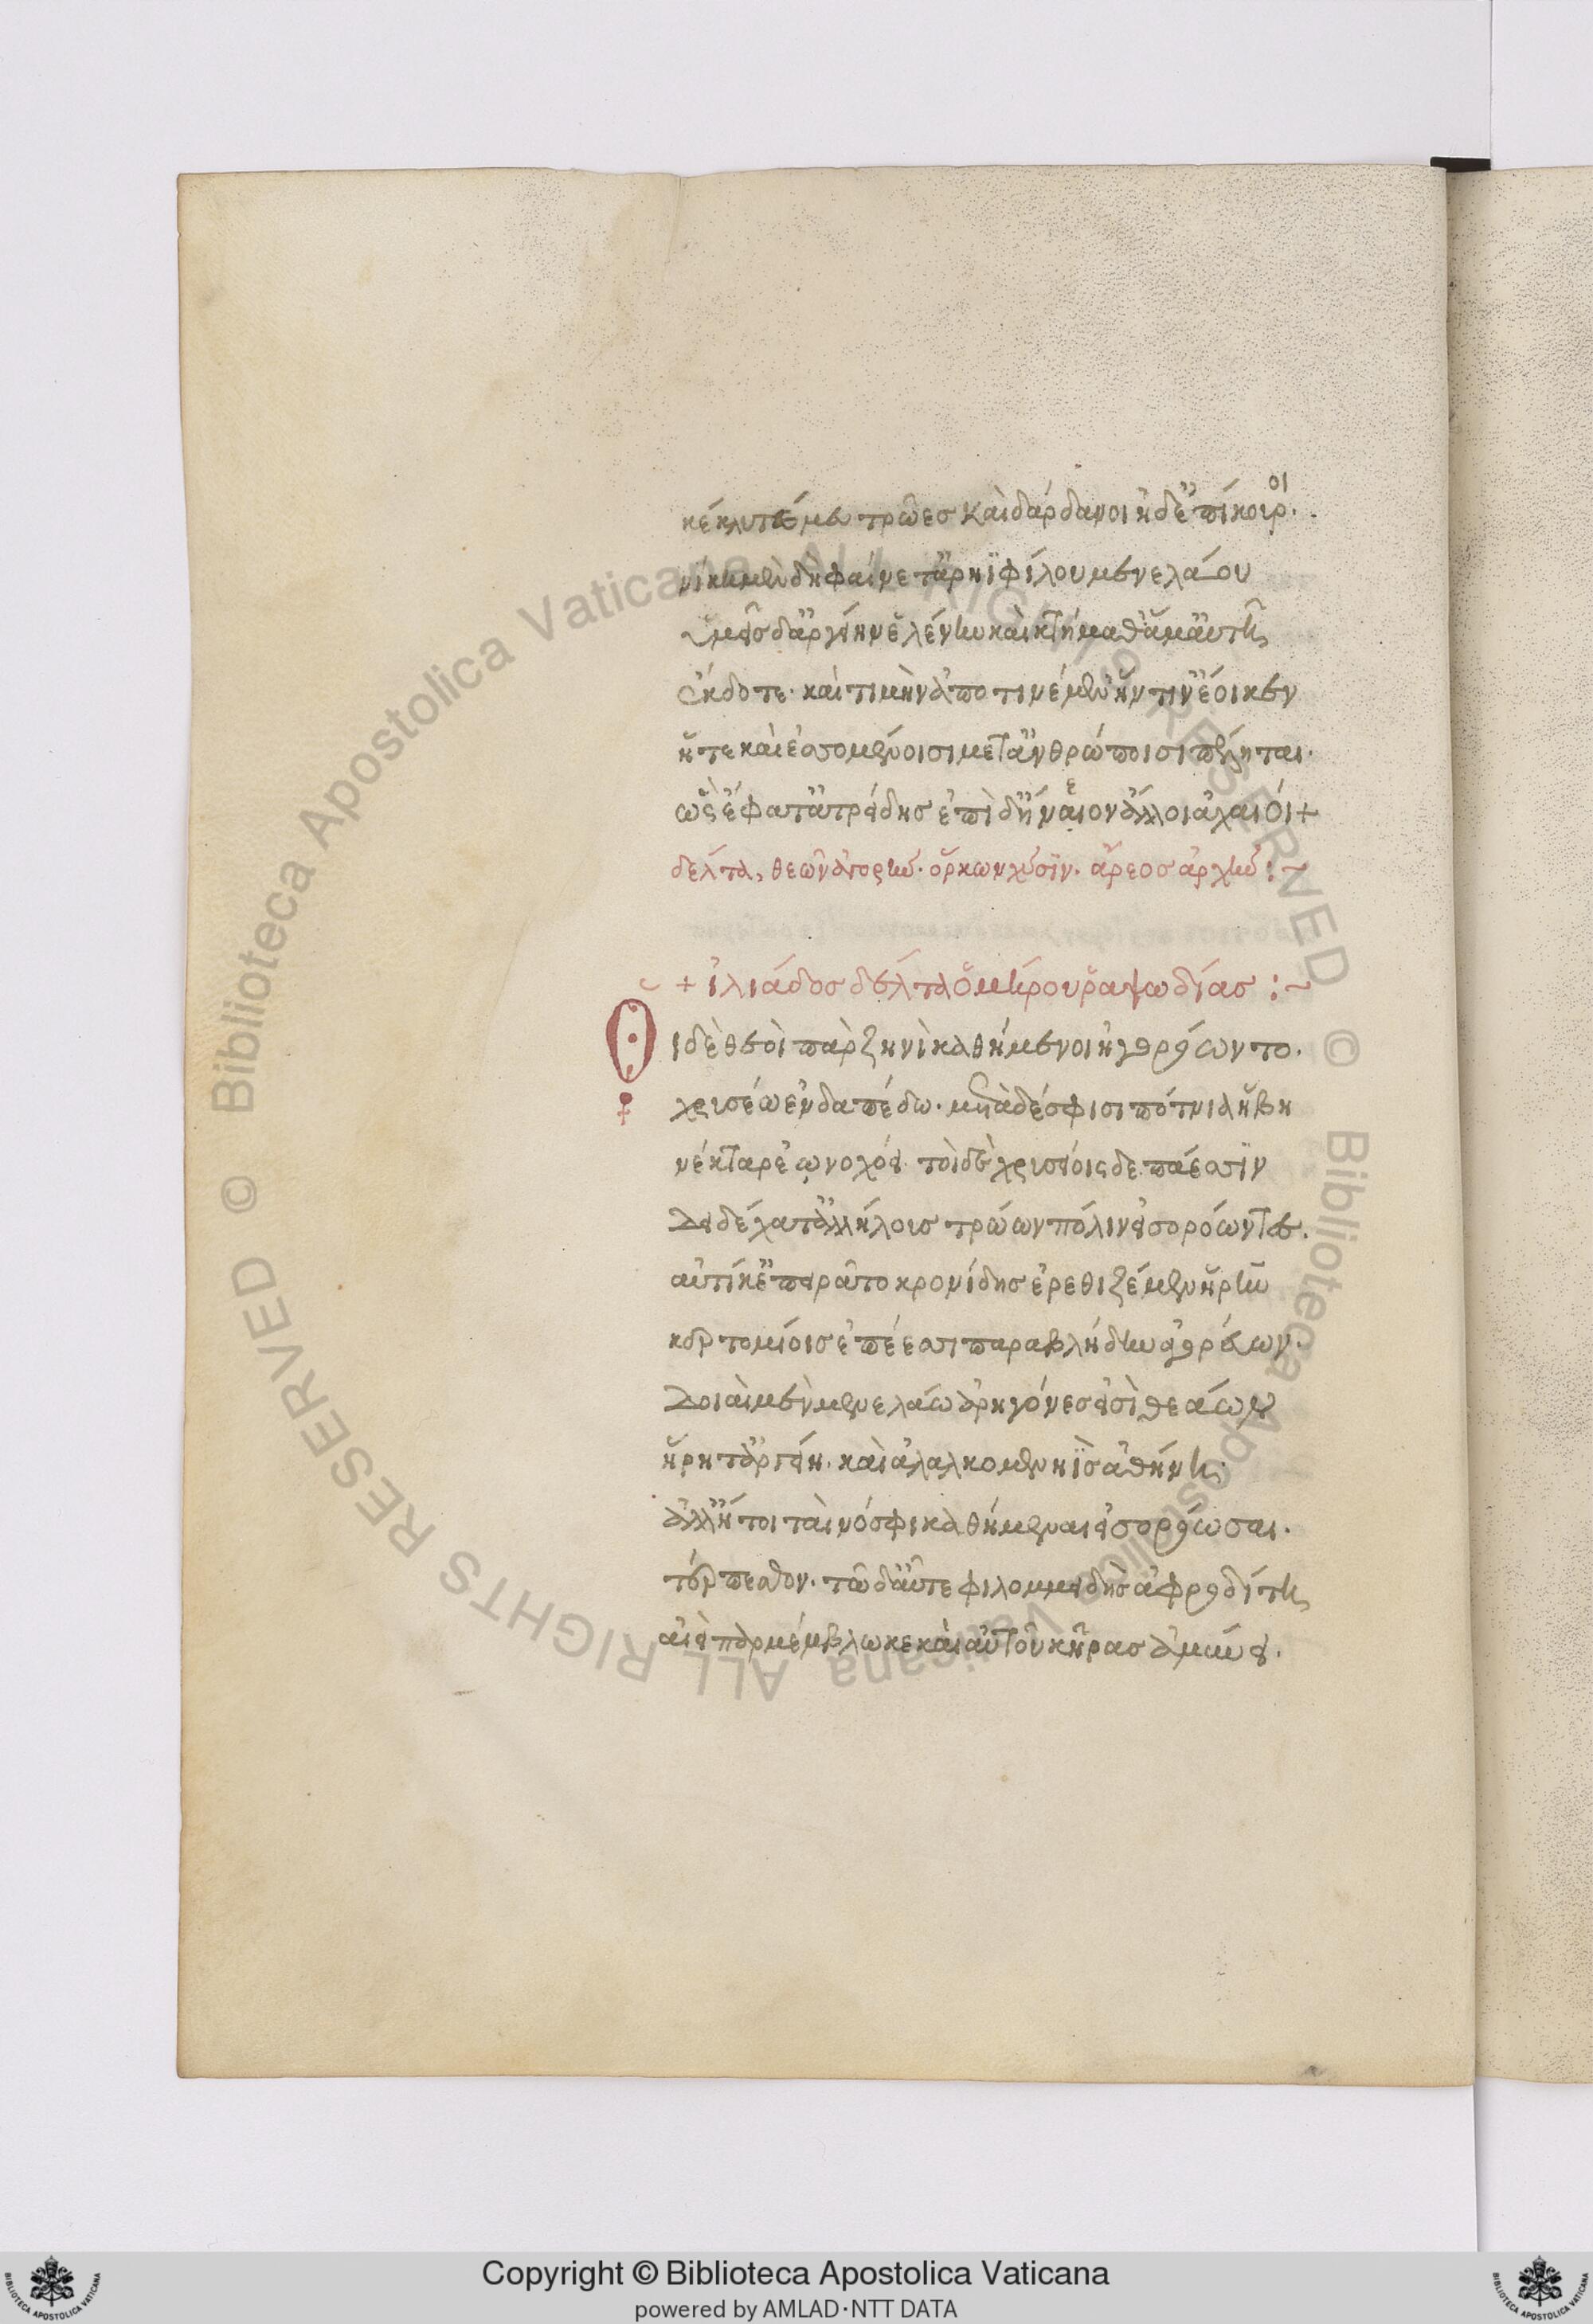 κέκλυτέ μευ τρῶες καὶ δάρδανοι ἠδ' ἐπίκουροι.
νίκη μὲν δὴ φαίνετ' ἀρηϊφίλου μενελάου
ὑμεῖς δ' ἀργείην ἑλένην καὶ κτήμαθ' ἅμ' αὐτῆ
ἔκδοτε. καὶ τιμὴν ἀποτινέμεν ἥν τιν' ἔοικεν
ἥτε καὶ ἐσσομένοισι μετ' ἀνθρώποισι πέληται.
ὣς ἔφατ' ἀτρείδης ἐπὶ δ' ἤνεον ἄλλοι ἀχαιοί +
δέλτα, θεῶν ἀγορήν. ὅρκων χύσιν. ἄρεος ἀρχήν :~
+ ἰλιάδος δέλτα ὁμήρου ῥαψωδίας :~
Οἱ δὲ θεοὶ πὰρ ζηνὶ καθήμενοι ἠγορόωντο.
χρυσέω ἐν δαπέδω. μετὰ δέ σφισι πότνια ἥβη
νέκταρ ἐωνοχόει τοὶ δὲ χρυσέοις δεπάεσσιν
δειδέχατ' ἀλλήλοις τρώων πόλιν εἰσορόωντες.
αὐτίκ' ἐπειρᾶτο κρονίδης ἐρεθιζέμεν ἥρην
κερτομίοις ἐπέεσσι παραβλήδην ἀγορεύων.
Δοιαὶ μὲν μενελάω ἀρηγόνες εἰσὶ θεάων
ἥρη τ' ἀργείη. καὶ ἀλαλκομενηῒς ἀθήνη
ἀλλ' ἤτοι ταὶ νόσφι καθήμεναι εἰσορόωσαι.
τέρπεσθον. τῶ δ' αὖτε φιλομμειδὴς ἀφροδίτη
αἰεὶ παρμέμβλωκε καὶ αὐτοῦ κῆρας ἀμύνει.
Copyright © Biblioteca Apostolica Vaticana
powered by AMLAD·NTT DATA